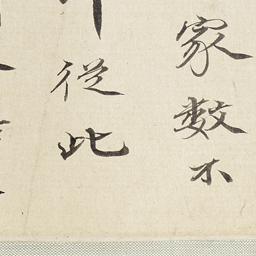 家數不
從此